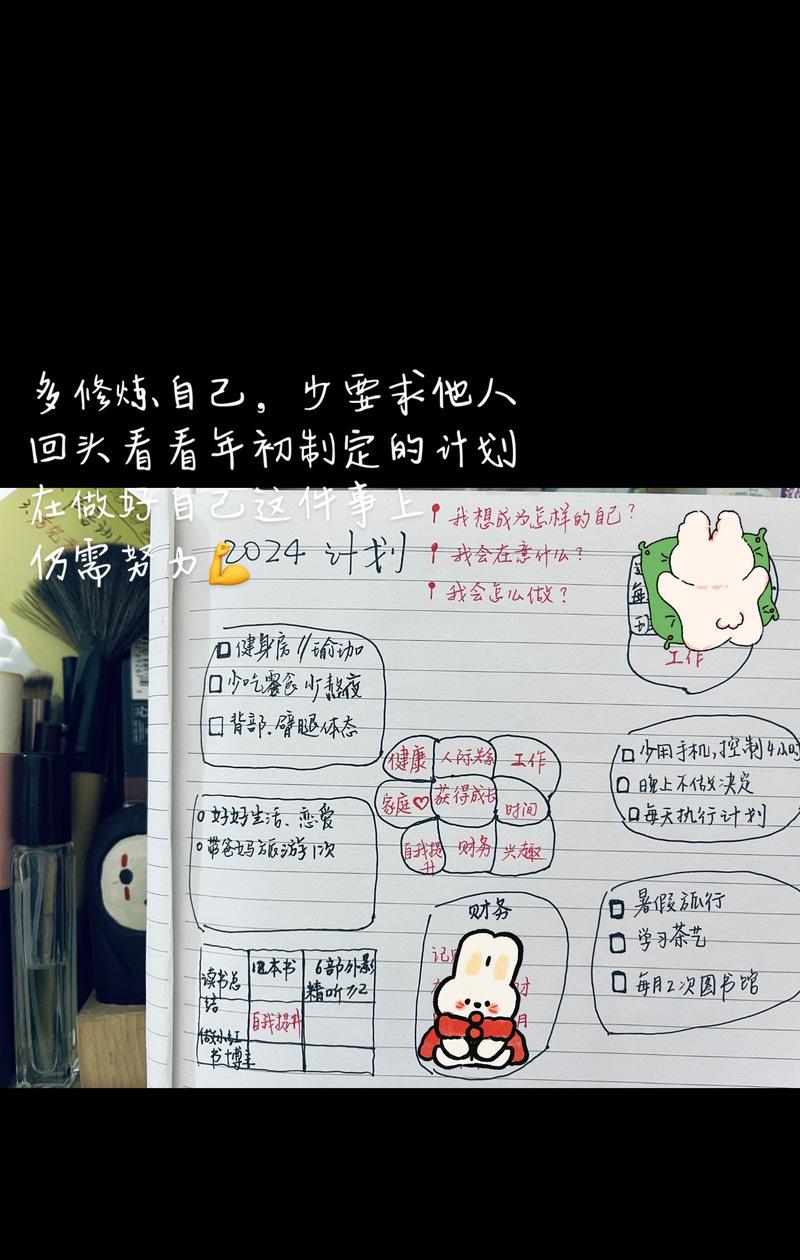 多修炼自己，少要求他人
回头看看年初制定的计划
在做好自己这件事上
仍需努力💪
2024 计划
我想成为怎样的自己？
我会在意什么？
我会怎么做？
工作
健身房//瑜伽
少吃零食 少熬夜
背部、臂腿体态
健康
人际关系
工作
家庭♡
获得成长
时间
自我提升
财务
兴趣
少用手机,控制4小时
晚上不做决定
每天执行计划
好好生活、恋爱
带爸妈旅游1次
财务
暑假旅行
学习茶艺
每月2次图书馆
读书总结
12本书
6部外影
精听
自我提升
做小红书博主